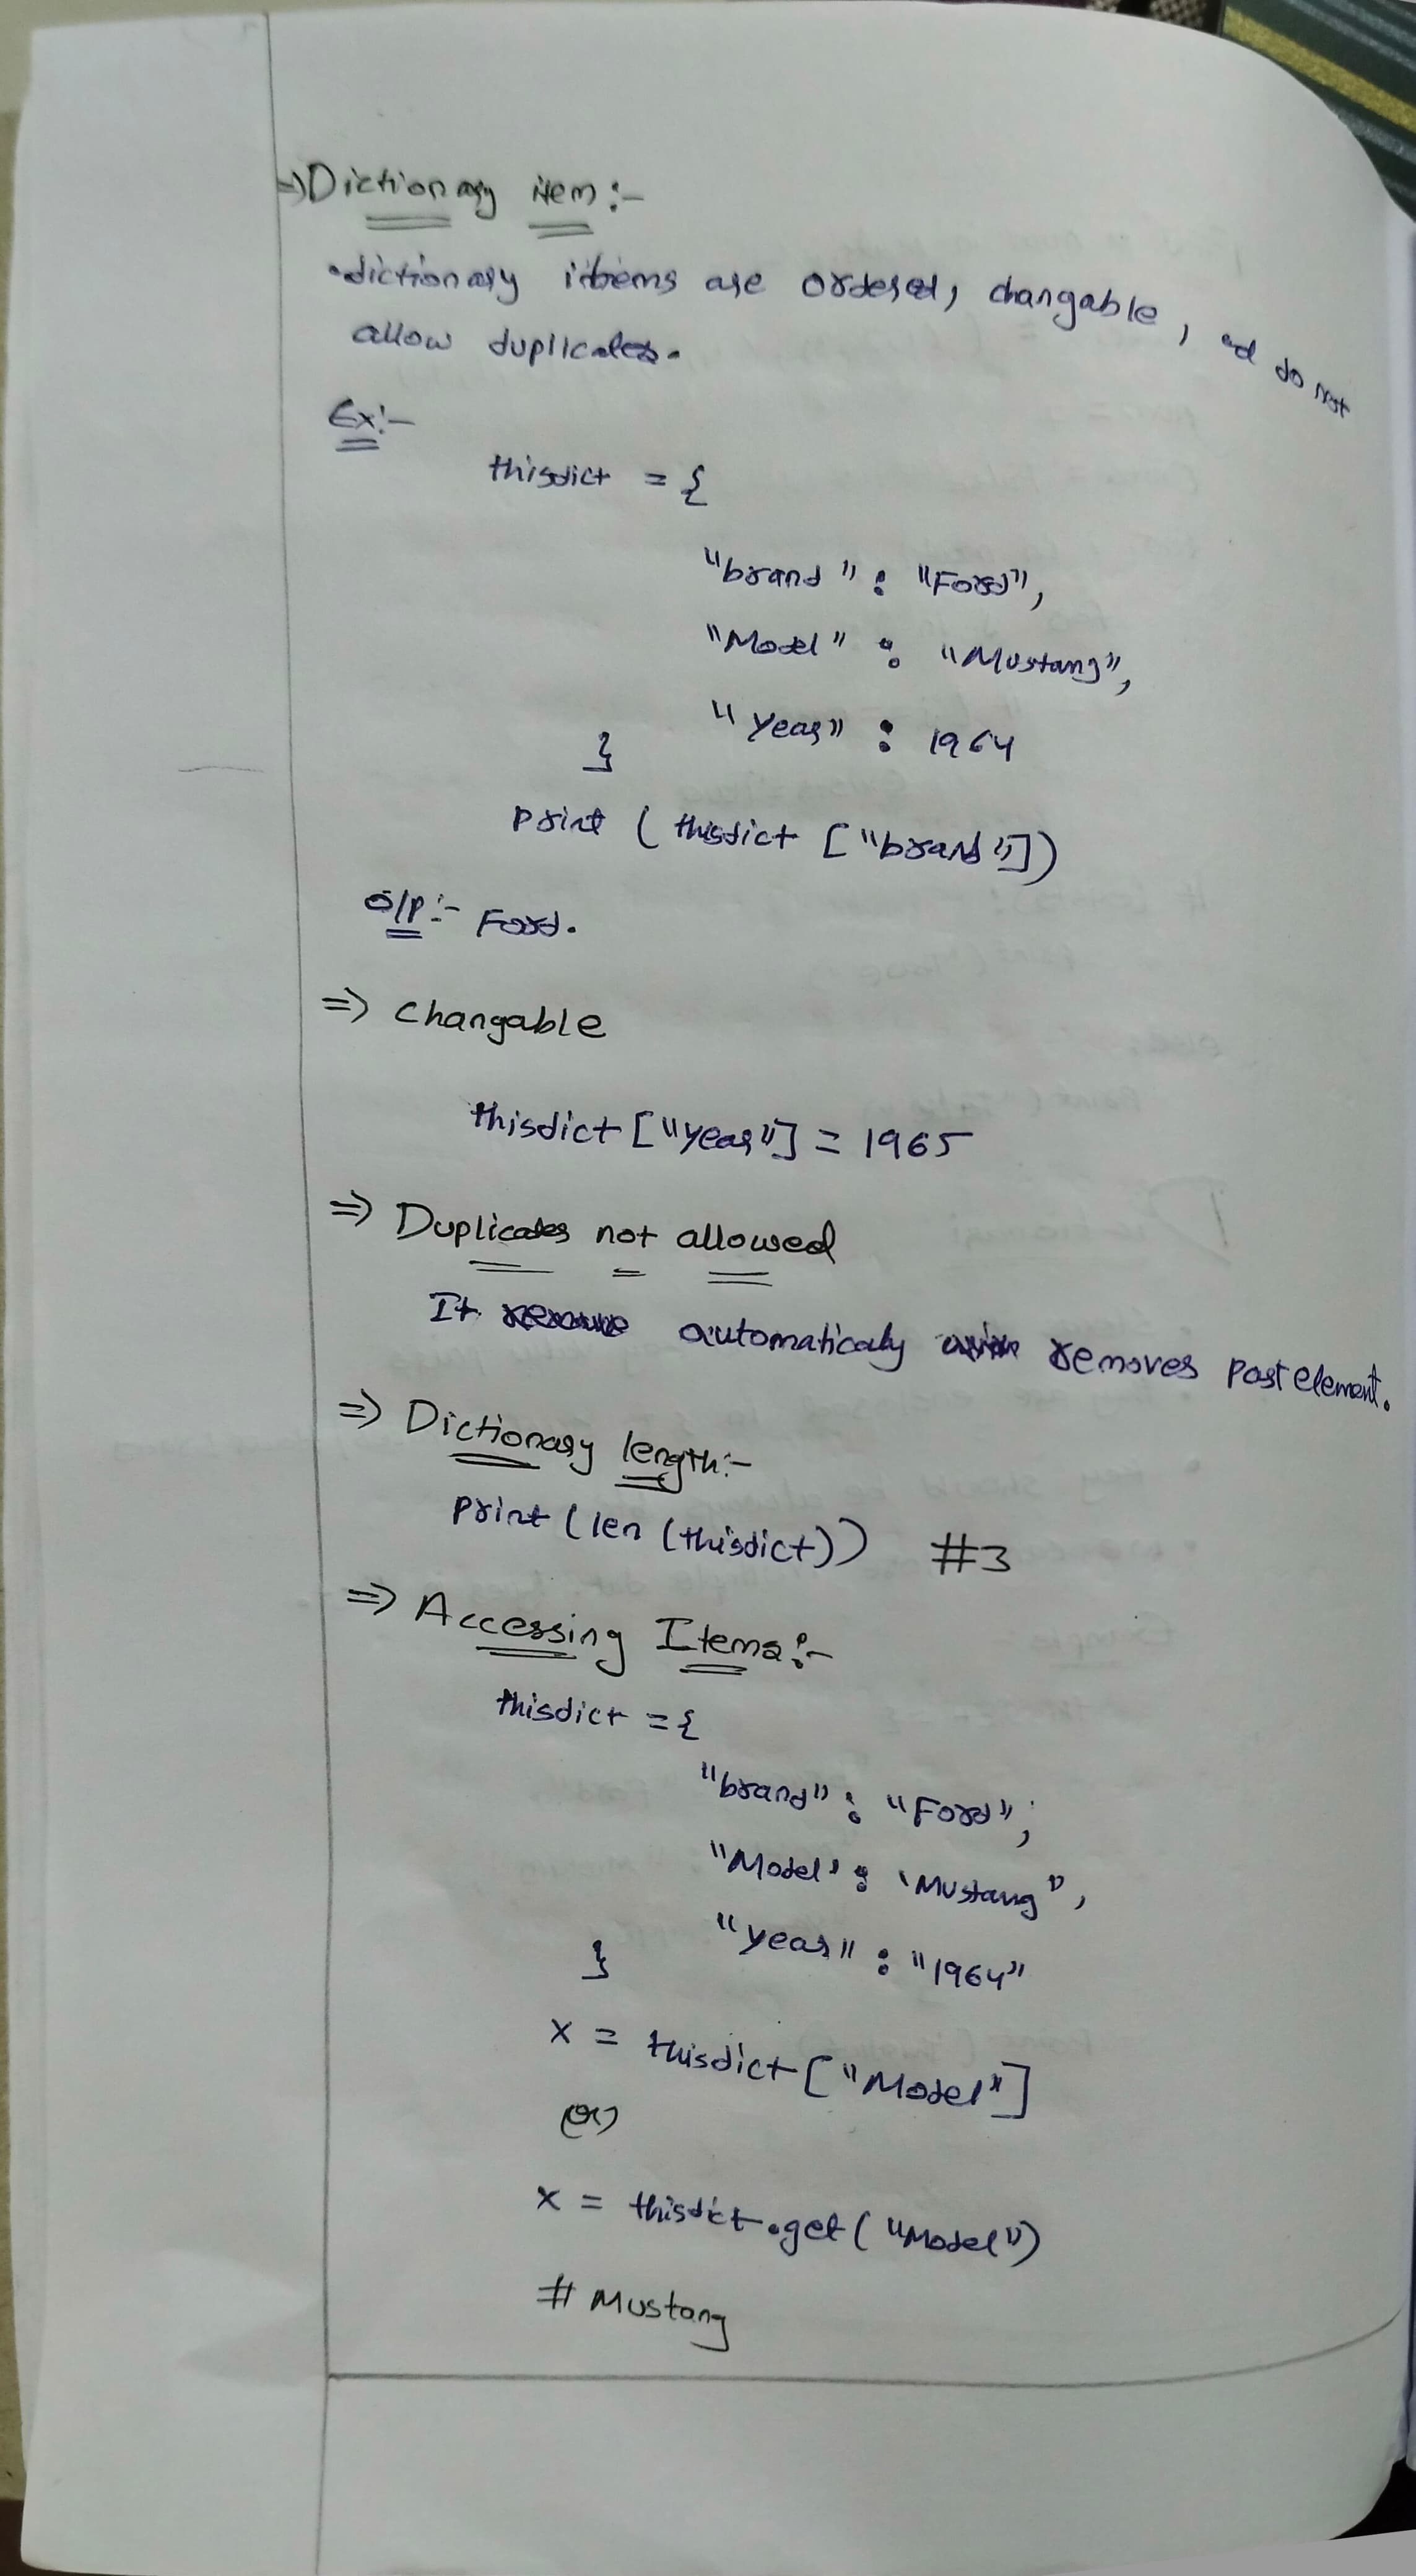 ⇒ Dictionary item:-
• dictionary items are ordered, changable, and do not
allow duplicates.
Ex:-
thisdict = {
"brand" : "Ford",
"Model" : "Mustang",
"year" : 1964
}
print (thisdict ["brand"])
O/P:- Ford.
⇒ Changable
thisdict ["year"] = 1965
⇒ Duplicates not allowed
It automaticaly removes past element.
⇒ Dictionary length:-
print (len (thisdict)) #3
⇒ Accessing Items:-
thisdict = {
"brand" : "Ford",
"Model' : 'Mustang",
"year" : "1964"
}
x = thisdict ["Model"]
(or)
x = thisdict.get ("Model")
# Mustang